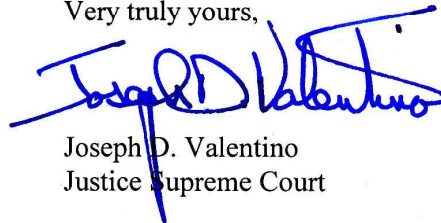 Very truly yours,
Joseph D Valentino
Joseph D. Valentino
Justice Supreme Court